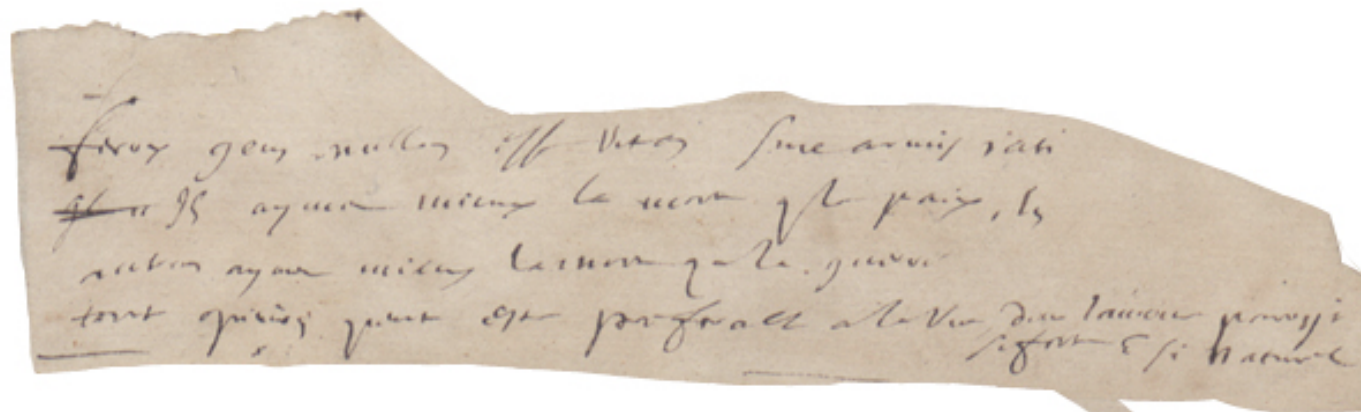 ferox gens nullam esse vitam sine armis rati
Ils ayment mieux la mort q la paix, les
autres ayment mieux la mort que la guerre
toute opinion peut estre preferable a la vie, dont lamour paroist
si fort & si naturel